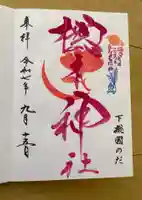 下総国のだ
櫻木神社
奉拝 令和七年 九月 十五日